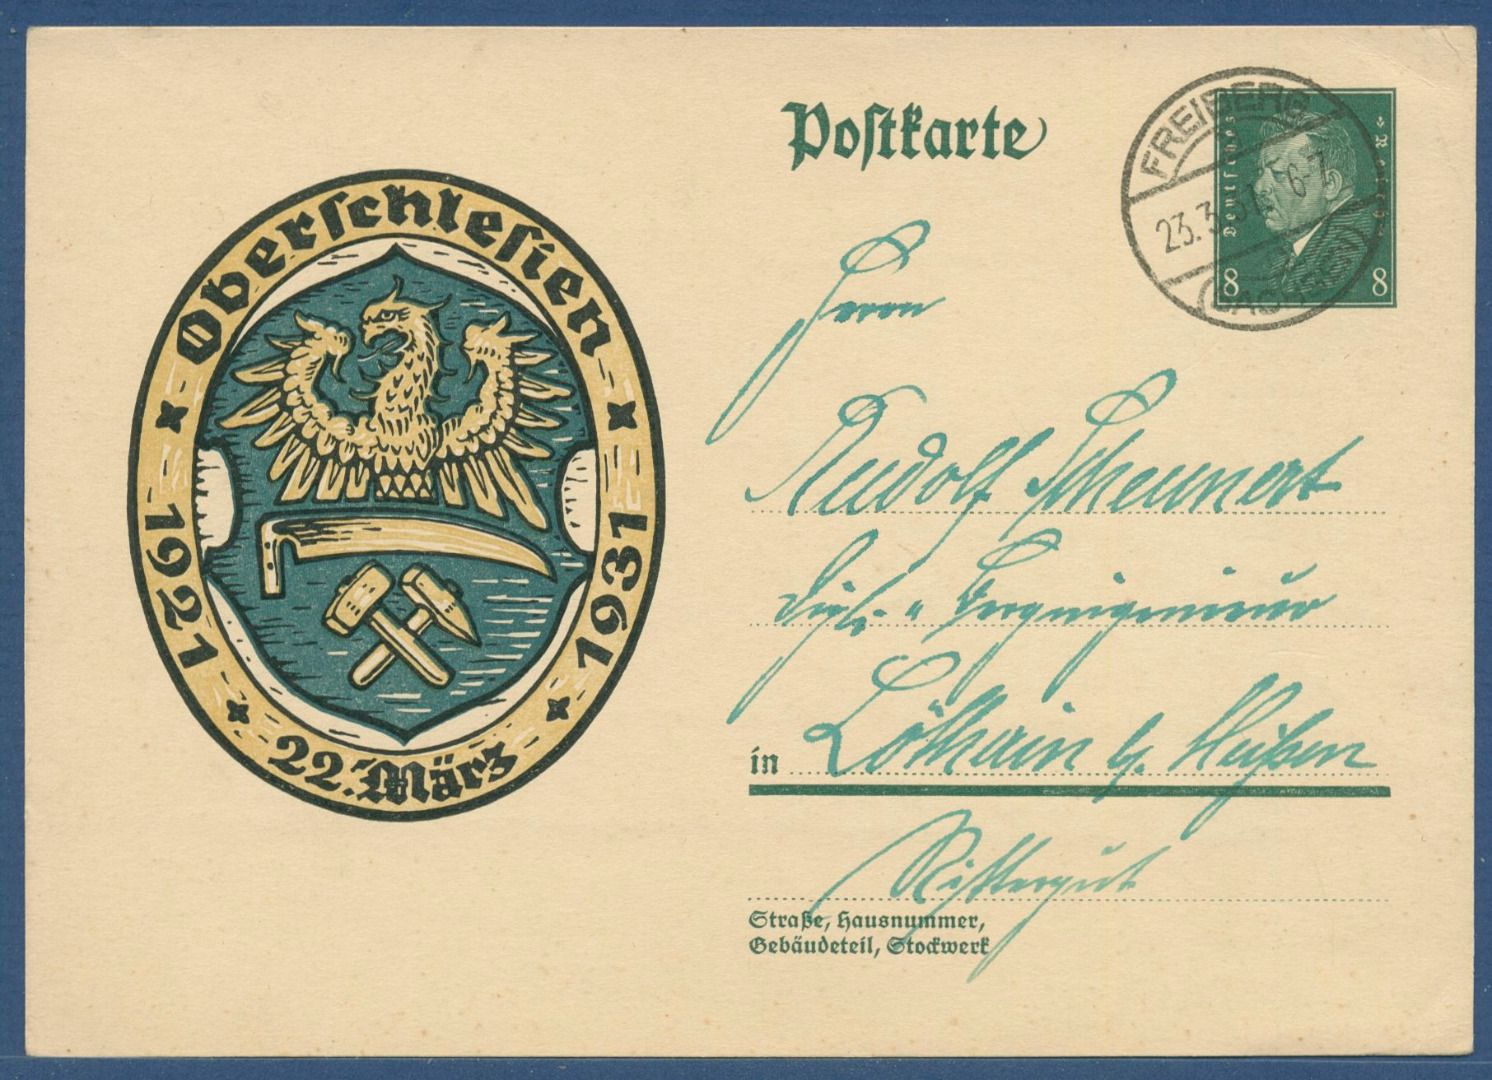 Postkarte
Oberschlesien
1921
1931
22. März
FREIBERG
23.3.31 6-7
Deutsches
Reich
8 8
Herrn
Rudolf Scheunert
Dipl.- u Bergingenieur
in Löthain b/ Meißen
Rittergut
Straße, Hausnummer,
Gebäudeteil, Stockwerk